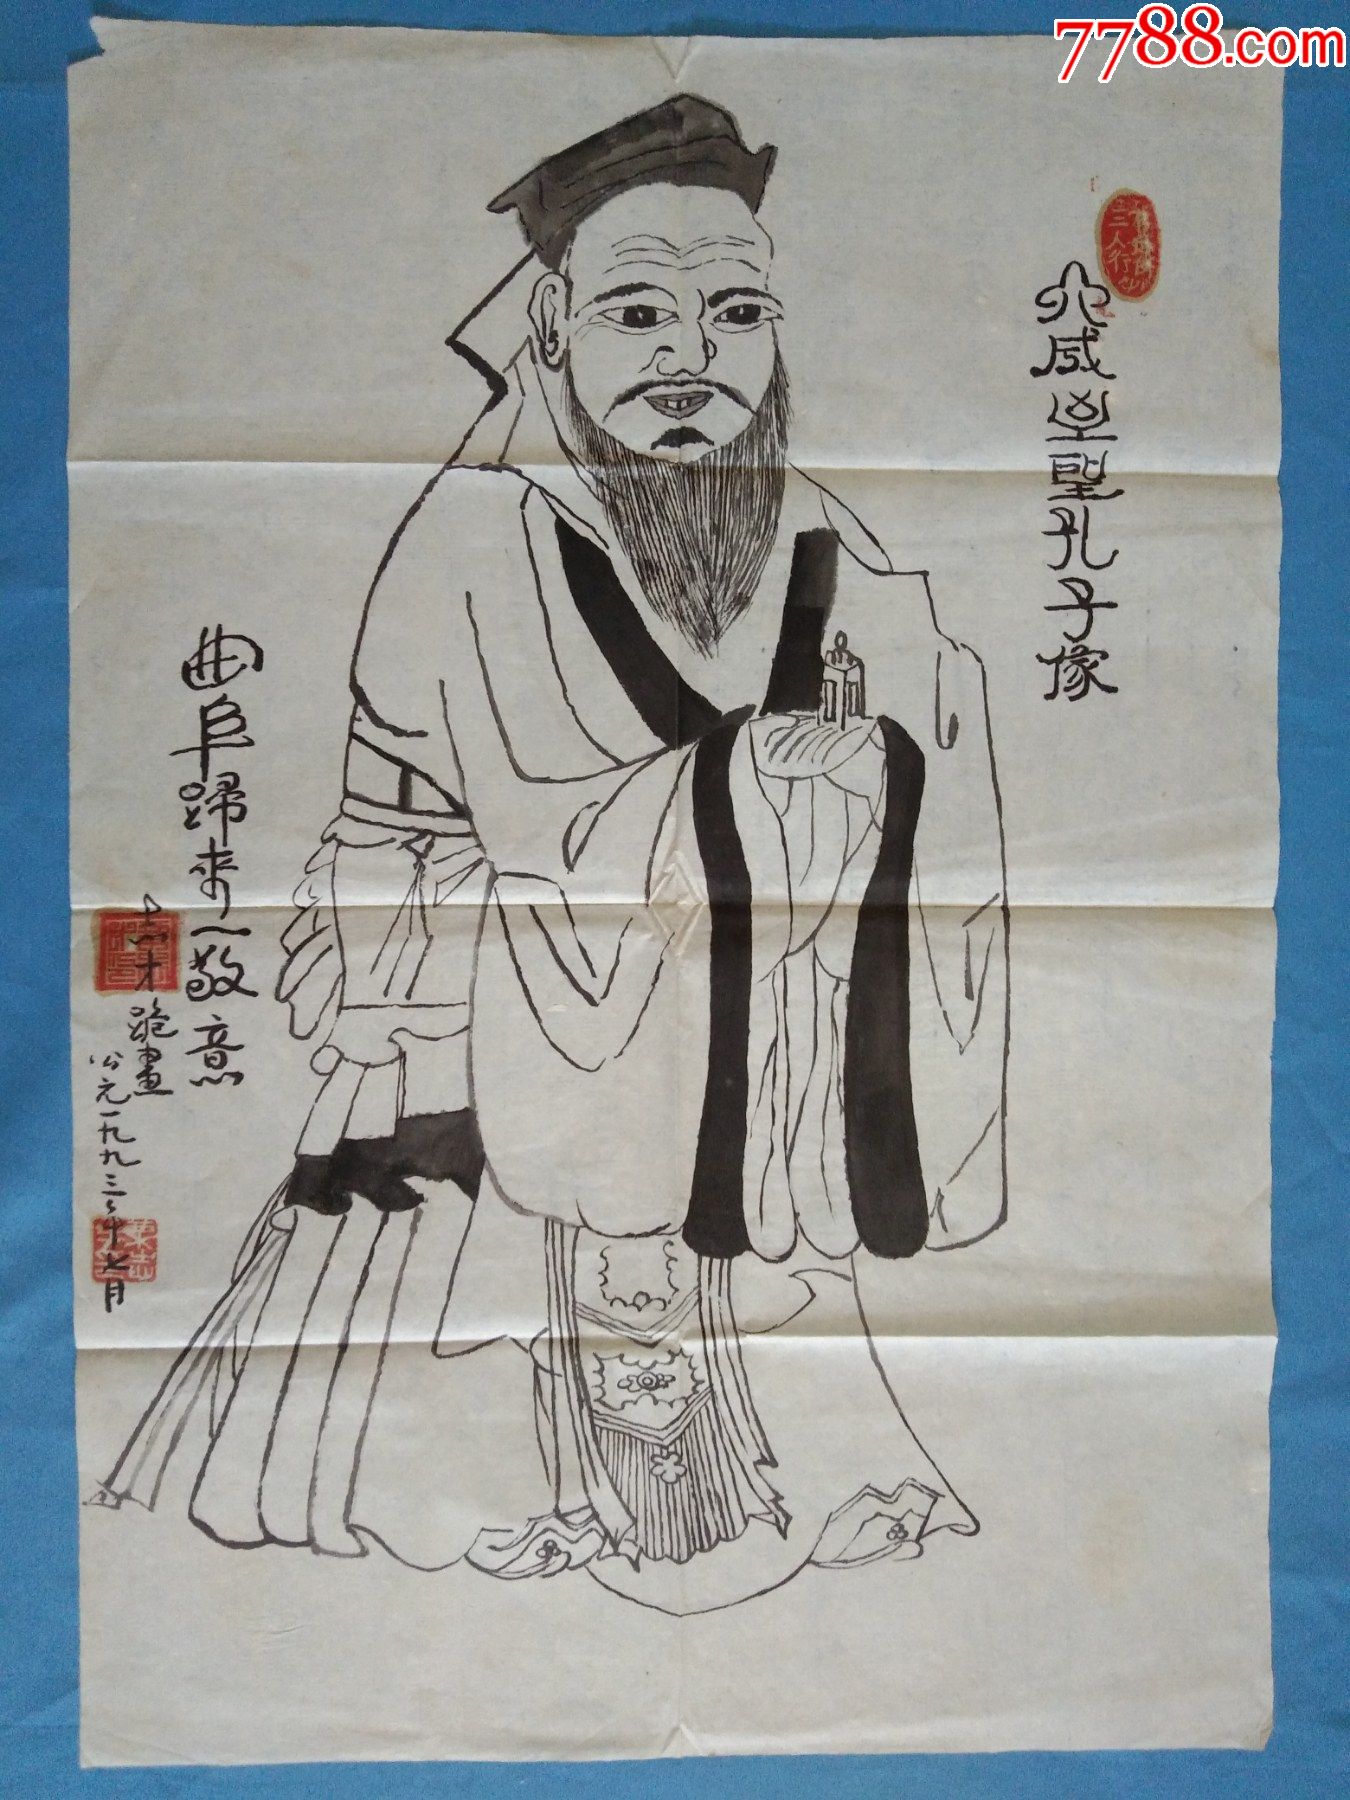 7788.com
大成至聖孔子像
三人行
曲阜歸來一敬意
志才跪畫
公元一九九三年七月